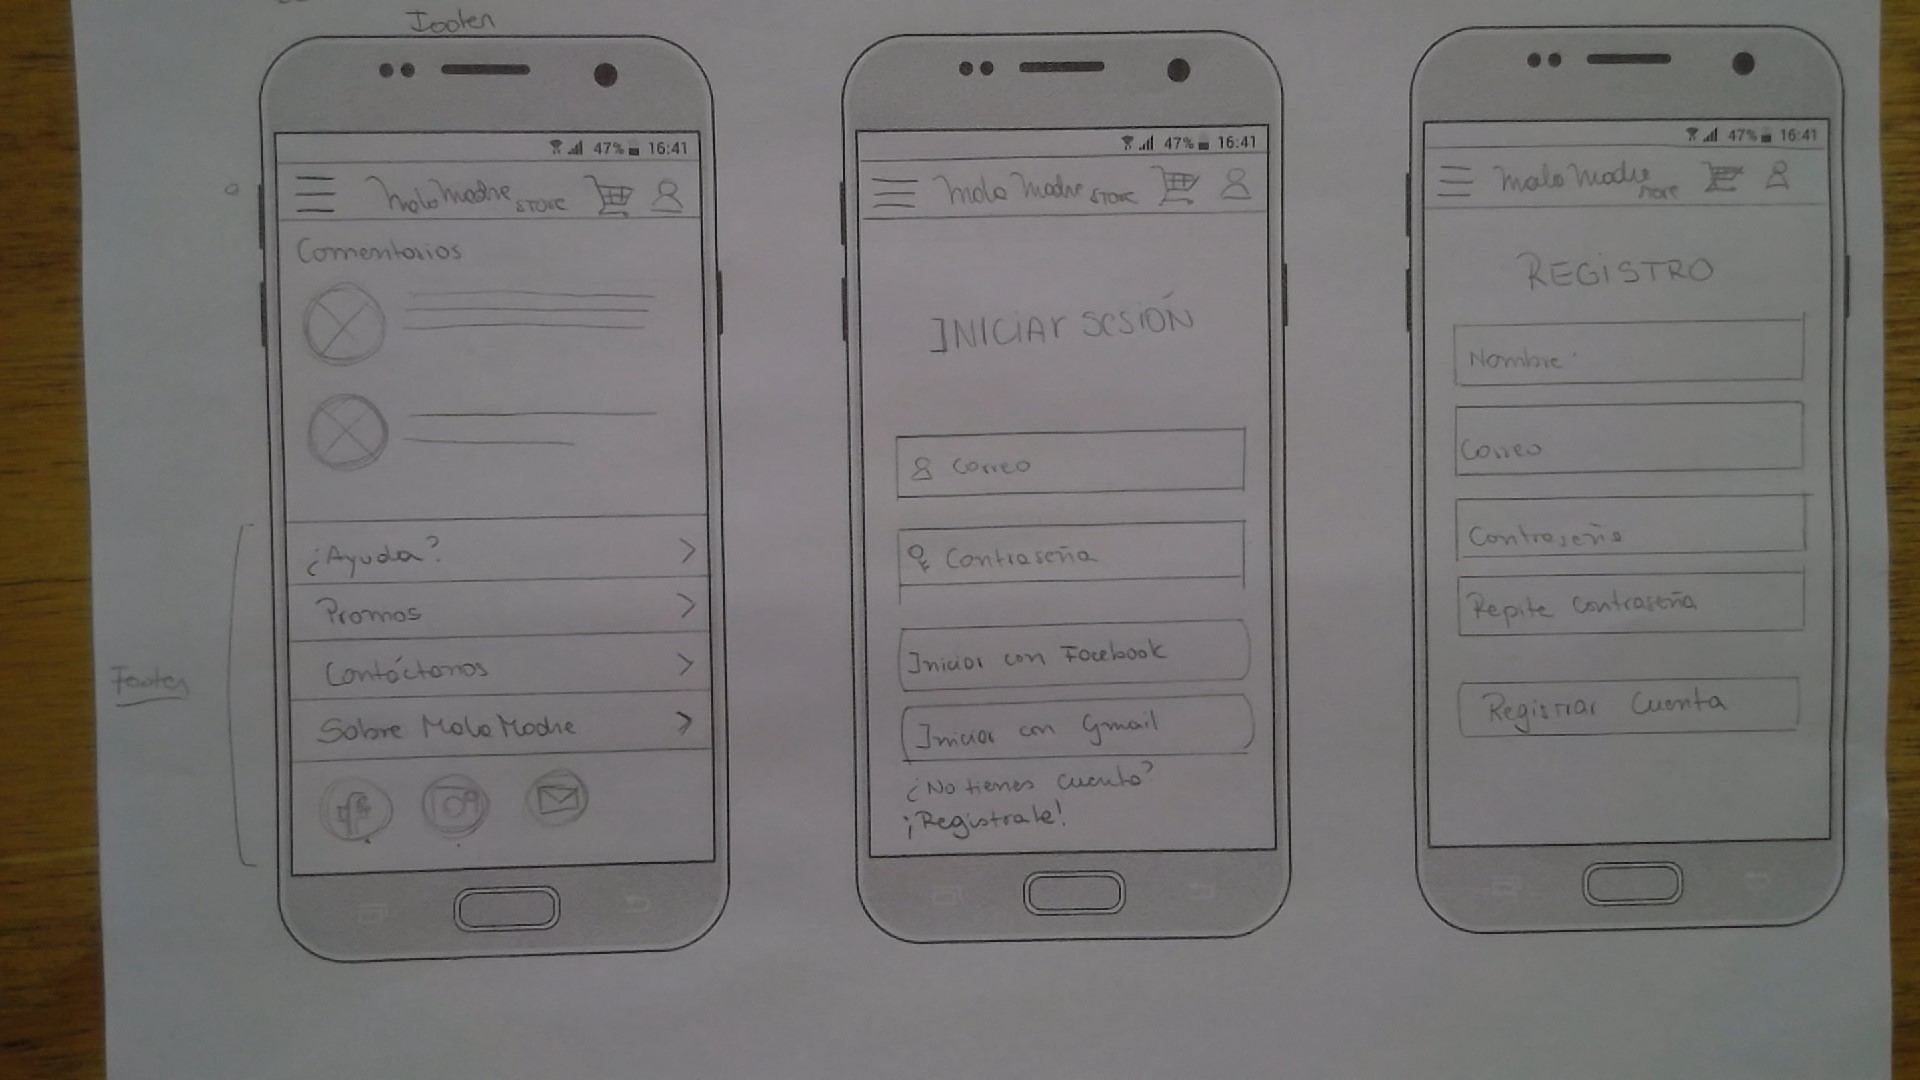 Footer
47% 16:41
MaloMadre STORE
Comentarios
¿Ayuda?
Promos
Contáctanos
Sobre MaloMadre
Footer
47% 16:41
Malo Madre STORE
INICIAr SesIÓN
Correo
Contraseña
Iniciar con Facebook
Iniciar con Gmail
¿No tienes cuenta?
¡Registrate!
47% 16:41
Malo Madre
STORE
REGiSTRO
Nombre
Correo
Contraseña
Repite contraseña
Registrar Cuenta